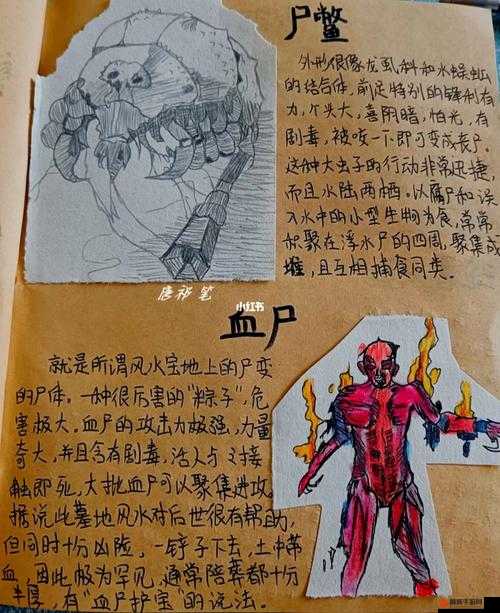 尸鳖
外形很像龙虱科和水蜈蚣
的结合体，前足特别的锋利有
力，个头大，喜阴暗，怕光，有
剧毒，被咬一下即可变成丧尸。
这种大虫子的行动非常迅捷，
而且水陆两栖。以腐尸和误
入水中的小型生物为食，常常
积聚在浮水尸的四周，聚集成
堆，且互相捕食同类。
唐祁笔
小红书
血尸
就是所谓风水宝地上的尸变
的尸体。一种很厉害的"粽子"，危
害极大。血尸的攻击力极强，力量
奇大，并且含有剧毒，活人与之接
触即死，大批血尸可以聚集进攻。
据说此墓地风水对后世很有帮助，
但同时十分凶险，一铲子下去，土中带
血，因此极为罕见，通常陪葬都十分
丰厚，有"血尸护宝"的说法。